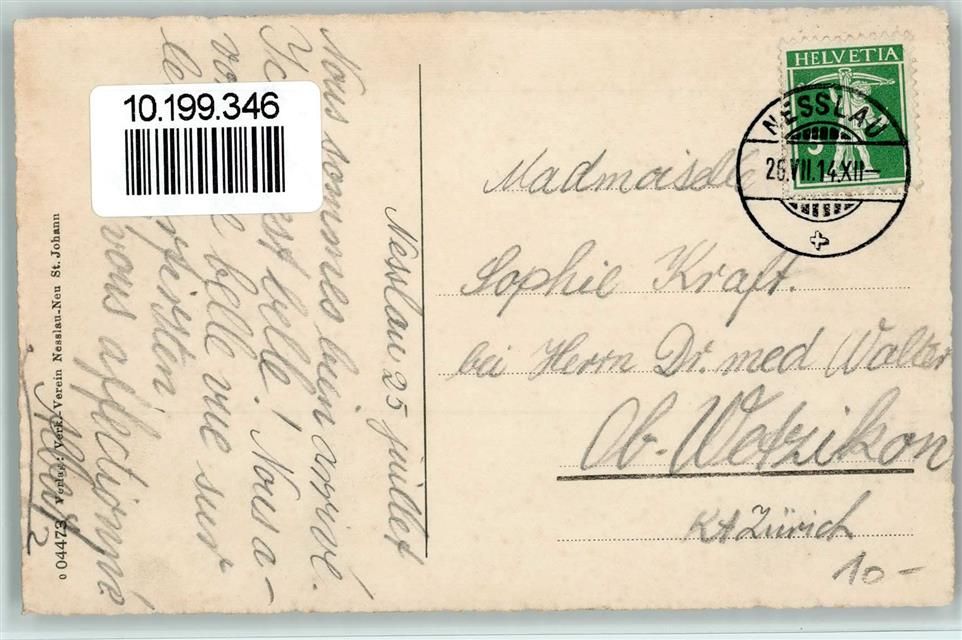 10.199.346
HELVETIA
5
NESSLAU
26.VII.14.XII-
Nesslau 25 juillet
Nous sommes bien arrivé.
est belle! Nous a-
belle vue sur
le firsten
vous affectionné
Madmoiselle
Sophie Kraft.
bei Herrn Dr. med Walter
Ob. Wetzikon
Kt Zürich
10-
2
04473 Verlag: Verk.-Verein Nesslau-Neu St. Johann